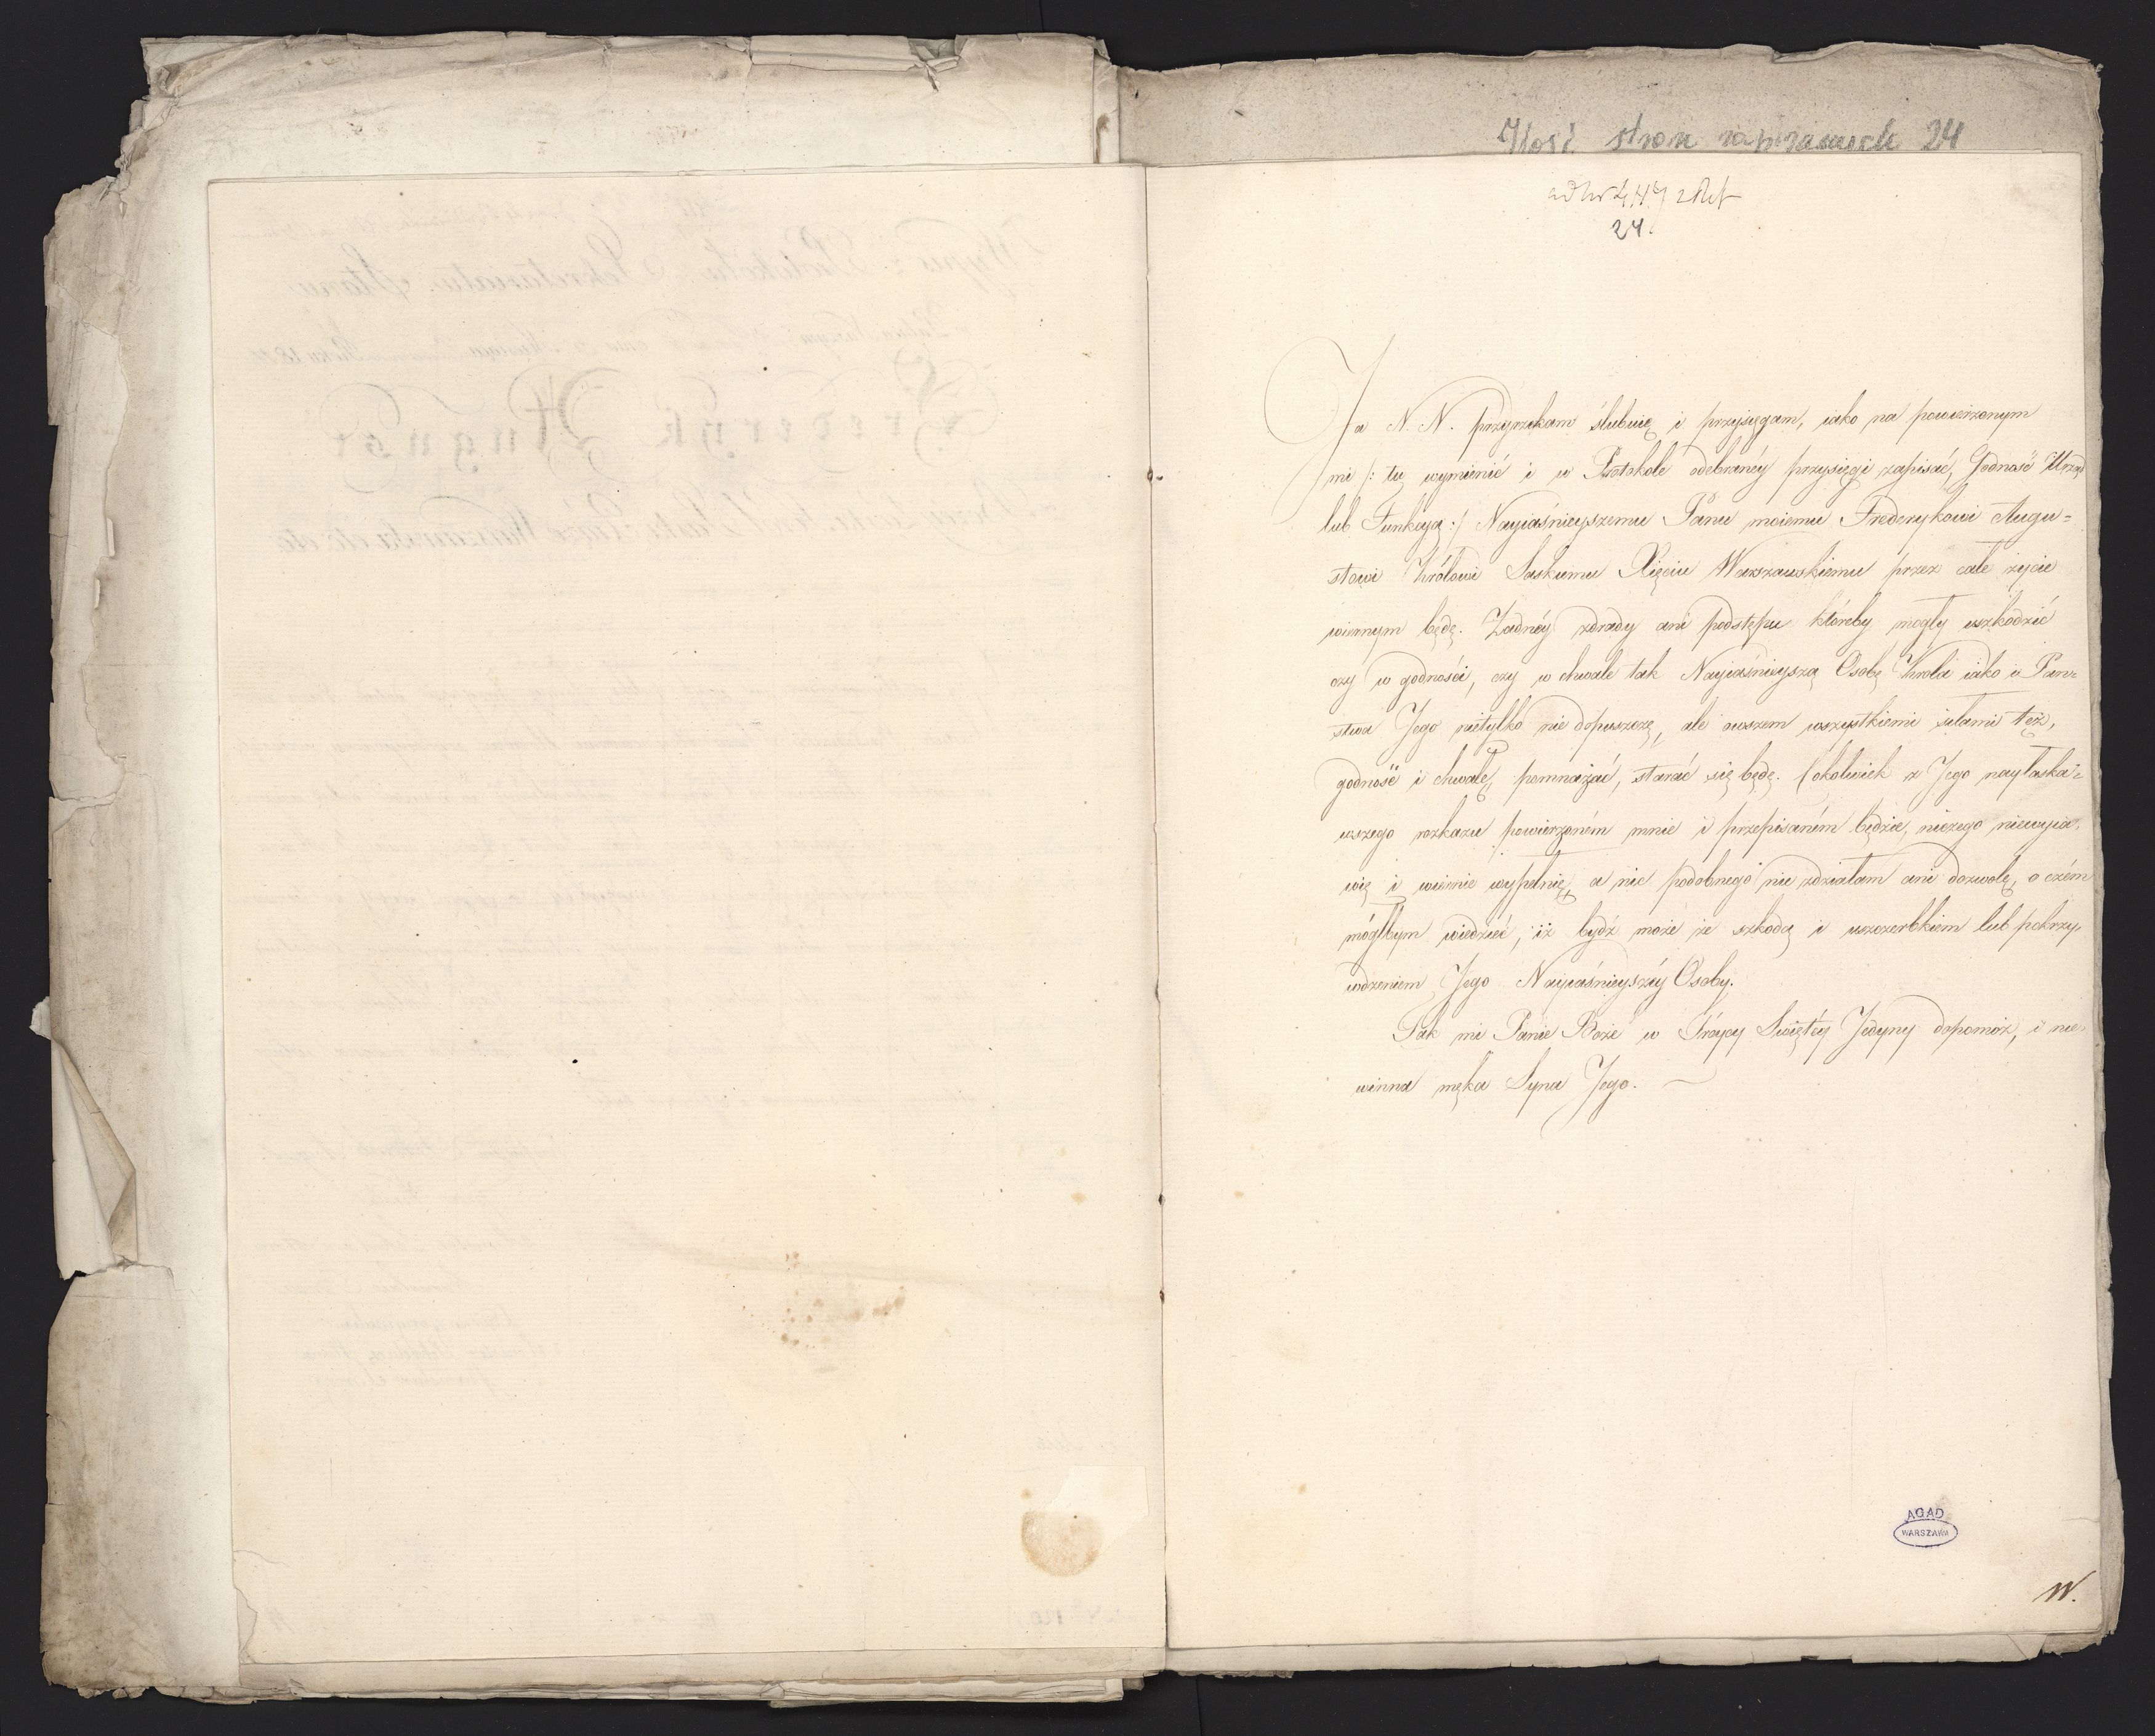 Ilość stron zapisanych 24
24.
Ja N. N. przyrzekam ślubuię i przysięgam, iako na powierzonym
mi /: tu wymienić i w Protokole odebranéy przysięgi zapisać, Godność Urząd
lub Funkcyą :/ Nayiaśnieyszemu Panu moiemu Frederykowi Augu=
stowi Królowi Saskiemu Xięciu Warszawskiemu przez całe życie
wiernym będę. Żadnéy zdrady ani podstępu któreby mogły uszkodzić
czy w godności, czy w chwale tak Nayiaśnieyszą Osobę Króla iako i Pań=
stwa Jego nietylko nie dopuszczę, ale owszem wszystkiemi siłami też,
godność i chwałę, pomnażać, starać się będę. Cokolwiek z Jego nayłaska=
wszego rozkazu powierzoném mnie i przepisaném będzie, niczego niewyia=
wię i wiernie wypełnię, a nic podobnego nie zdziałam ani dozwolę, o czém
mógłbym wiedzieć, iż bydź może ze szkodą i uszczerbkiem lub pokrzy=
wdzeniem Jego Nayiaśnieyszéy Osoby.
Tak mi Panie Boże w Tróycy Swiętéy Jedyny dopomóż, i nie=
winna męka Syna Jego.
AGAD
WARSZAWA
W.